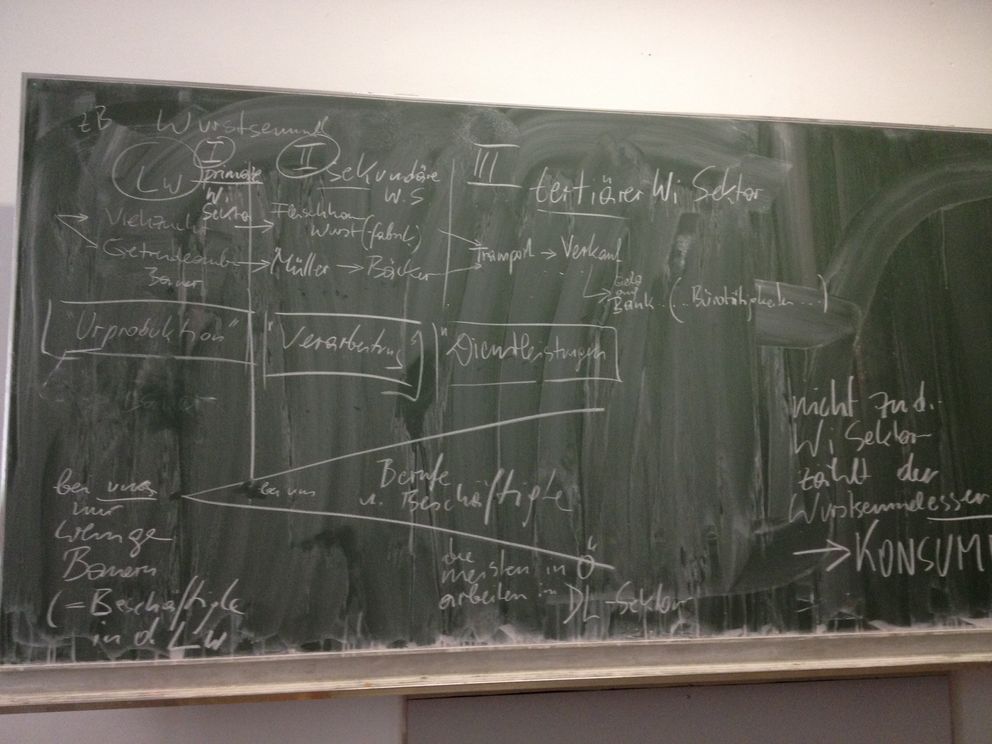 zB Wurstsemmel
LW
I
primäre
Wi
Sektor
II
sekundäre
W.S
III
tertiärer Wi Sektor
Viehzucht → Fleischhau
Wurst(fabrik)
Getreideanbau → Müller → Bäcker → Transport → Verkauf
Bauer
→ Geld
auf
Bank... (.. Bürotätigkeiten ...)
"Urproduktion"
"Verarbeitung"
"Dienstleistungen"
bei uns
nur
wenige
Bauern
(= Beschäftigte
in d. LW
bei uns
Berufe
u. Beschäftigte
die
meisten in Ö
arbeiten im DL-Sektor
nicht zu d.
Wi Sektor
zählt der
Wurstsemmelesser
→ KONSUM